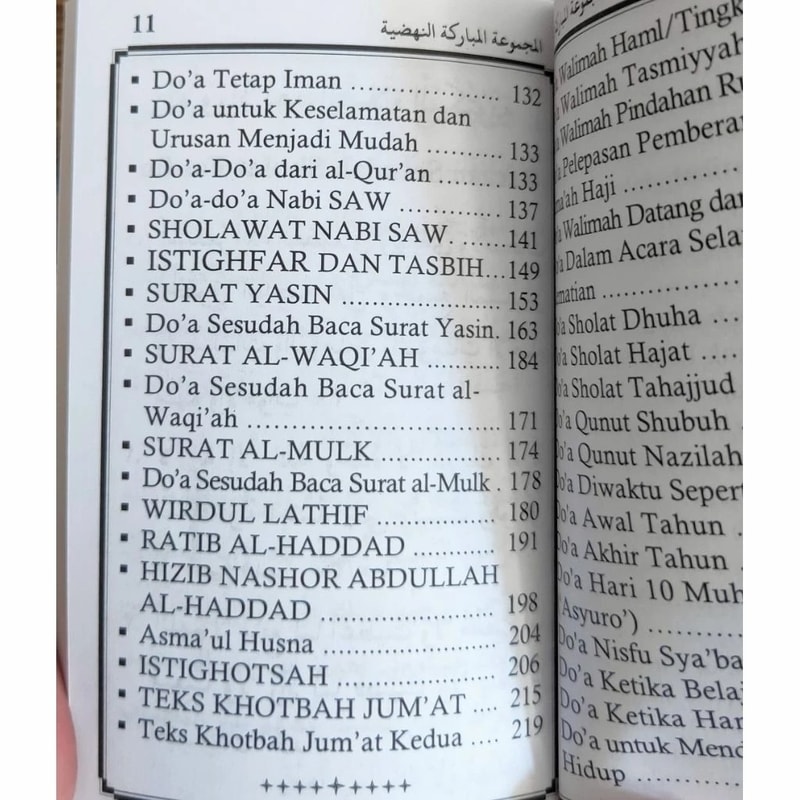 11
المجموعة المباركة النهضية
▪ Do'a Tetap Iman .................... 132
▪ Do'a untuk Keselamatan dan
Urusan Menjadi Mudah .......... 133
▪ Do'a-Do'a dari al-Qur'an ........ 133
▪ Do'a-do'a Nabi SAW ............. 137
▪ SHOLAWAT NABI SAW. ....... 141
▪ ISTIGHFAR DAN TASBIH...149
▪ SURAT YASIN .................... 153
▪ Do'a Sesudah Baca Surat Yasin. 163
▪ SURAT AL-WAQI'AH ........... 184
▪ Do'a Sesudah Baca Surat al-
Waqi'ah ................................ 171
▪ SURAT AL-MULK ............... 174
▪ Do'a Sesudah Baca Surat al-Mulk . 178
▪ WIRDUL LATHIF ................. 180
▪ RATIB AL-HADDAD ............ 191
▪ HIZIB NASHOR ABDULLAH
AL-HADDAD ........................ 198
▪ Asma'ul Husna ...................... 204
▪ ISTIGHOTSAH ..................... 206
▪ TEKS KHOTBAH JUM'AT .... 215
▪ Teks Khotbah Jum'at Kedua .... 219
Walimah Haml/Tingk
Walimah Tasmiyyah
Walimah Pindahan
Pelepasan Pemberan
Haji ..............
Walimah Datang dar
Dalam Acara Sela
Do'a Sholat Dhuha .....
Do'a Sholat Hajat ....
Do'a Sholat Tahajjud
Do'a Qunut Shubuh
Do'a Qunut Nazilah
Do'a Diwaktu Sepert
Do'a Awal Tahun .
Do'a Akhir Tahun .
Do'a Hari 10 Muh
'Asyuro') ............
Do'a Nisfu Sya'ba
Do'a Ketika Belaj
Do'a Ketika Har
Do'a untuk Mend
Hidup ..............